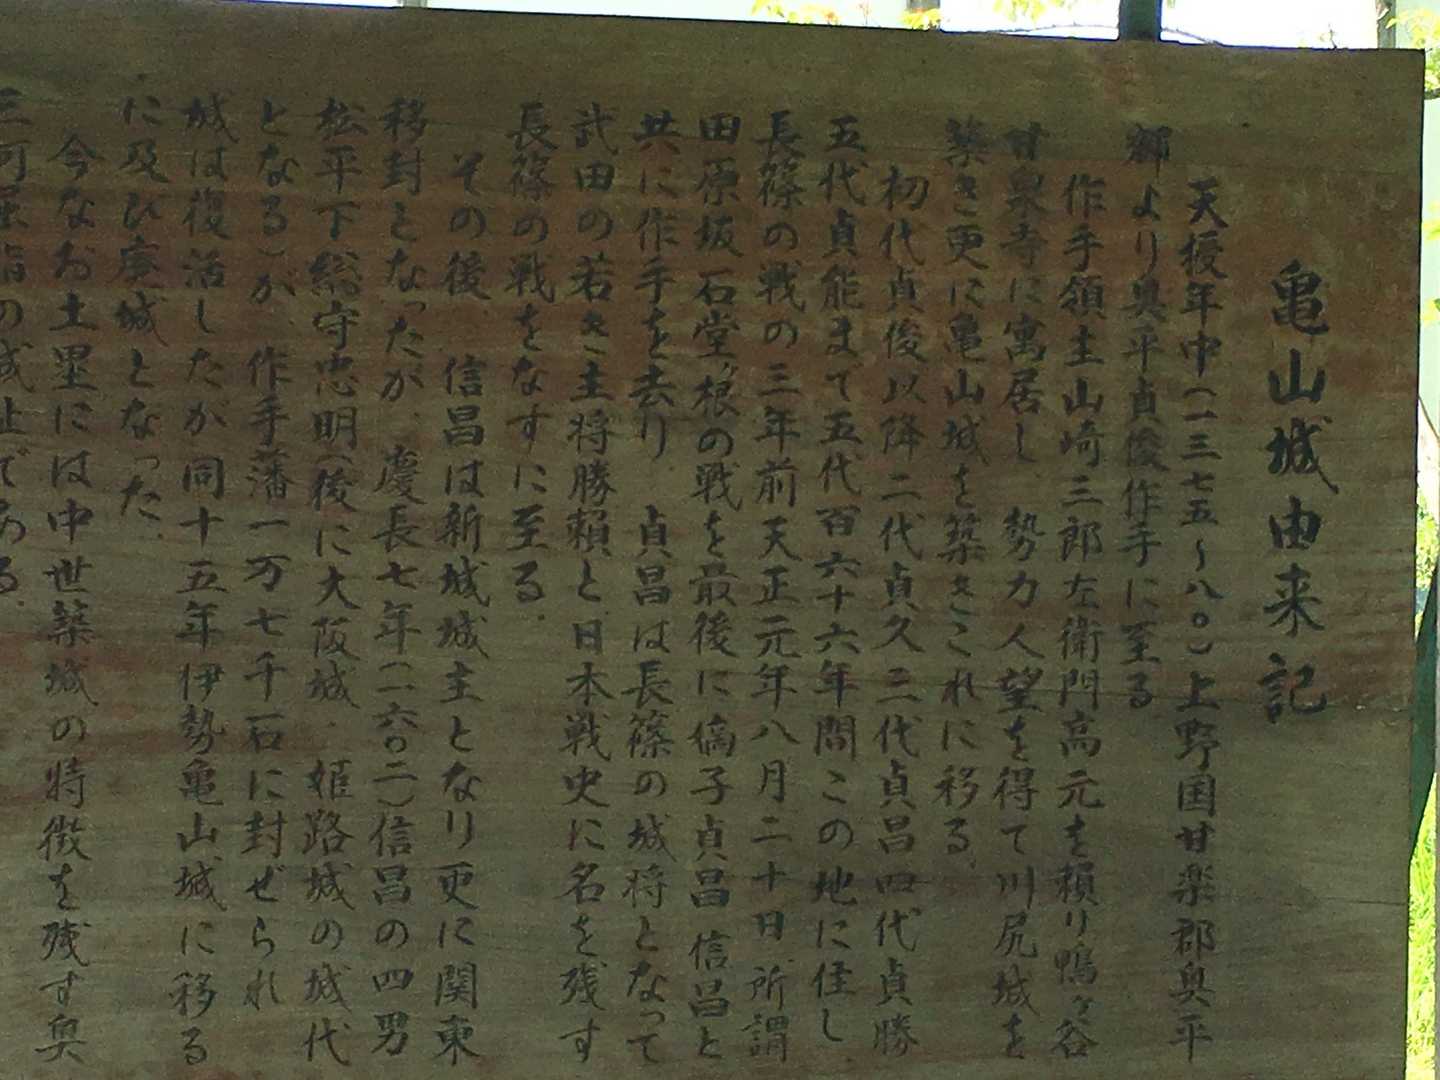 亀山城由来記
天授年中(一三七五~八〇)上野国甘楽郡奥平
郷より奥平貞俊作手に至る
作手領主山崎三郎左衛門高元を頼り鴨ヶ谷
甘泉寺に寓居し、勢力人望を得て川尻城を
築き更に亀山城を築きこれに移る、
初代貞俊以降二代貞久三代貞昌四代貞勝
五代貞能まで五代百六十六年間この地に住し
長篠の戦の三年前天正元年八月二十日、所謂
田原坂石堂ヶ根の戦を最後に倫子貞昌、信昌と
共に作手を去り、貞昌は長篠の城将となって
武田の若き主将勝頼と、日本戦史に名を残す
長篠の戦をなすに至る.
その後、信昌は新城城主となり更に関東
移封となったが、慶長七年(一六〇二)信昌の四男
松平下総守忠明(後に大阪城、姫路城の城代
となる)が、作手藩一万七千石に封ぜられ
城は復活したが同十五年伊勢亀山城に移る
に及び廃城となった.
今なお土塁には中世築城の特徴を残す奥
三河屈指の城址である.